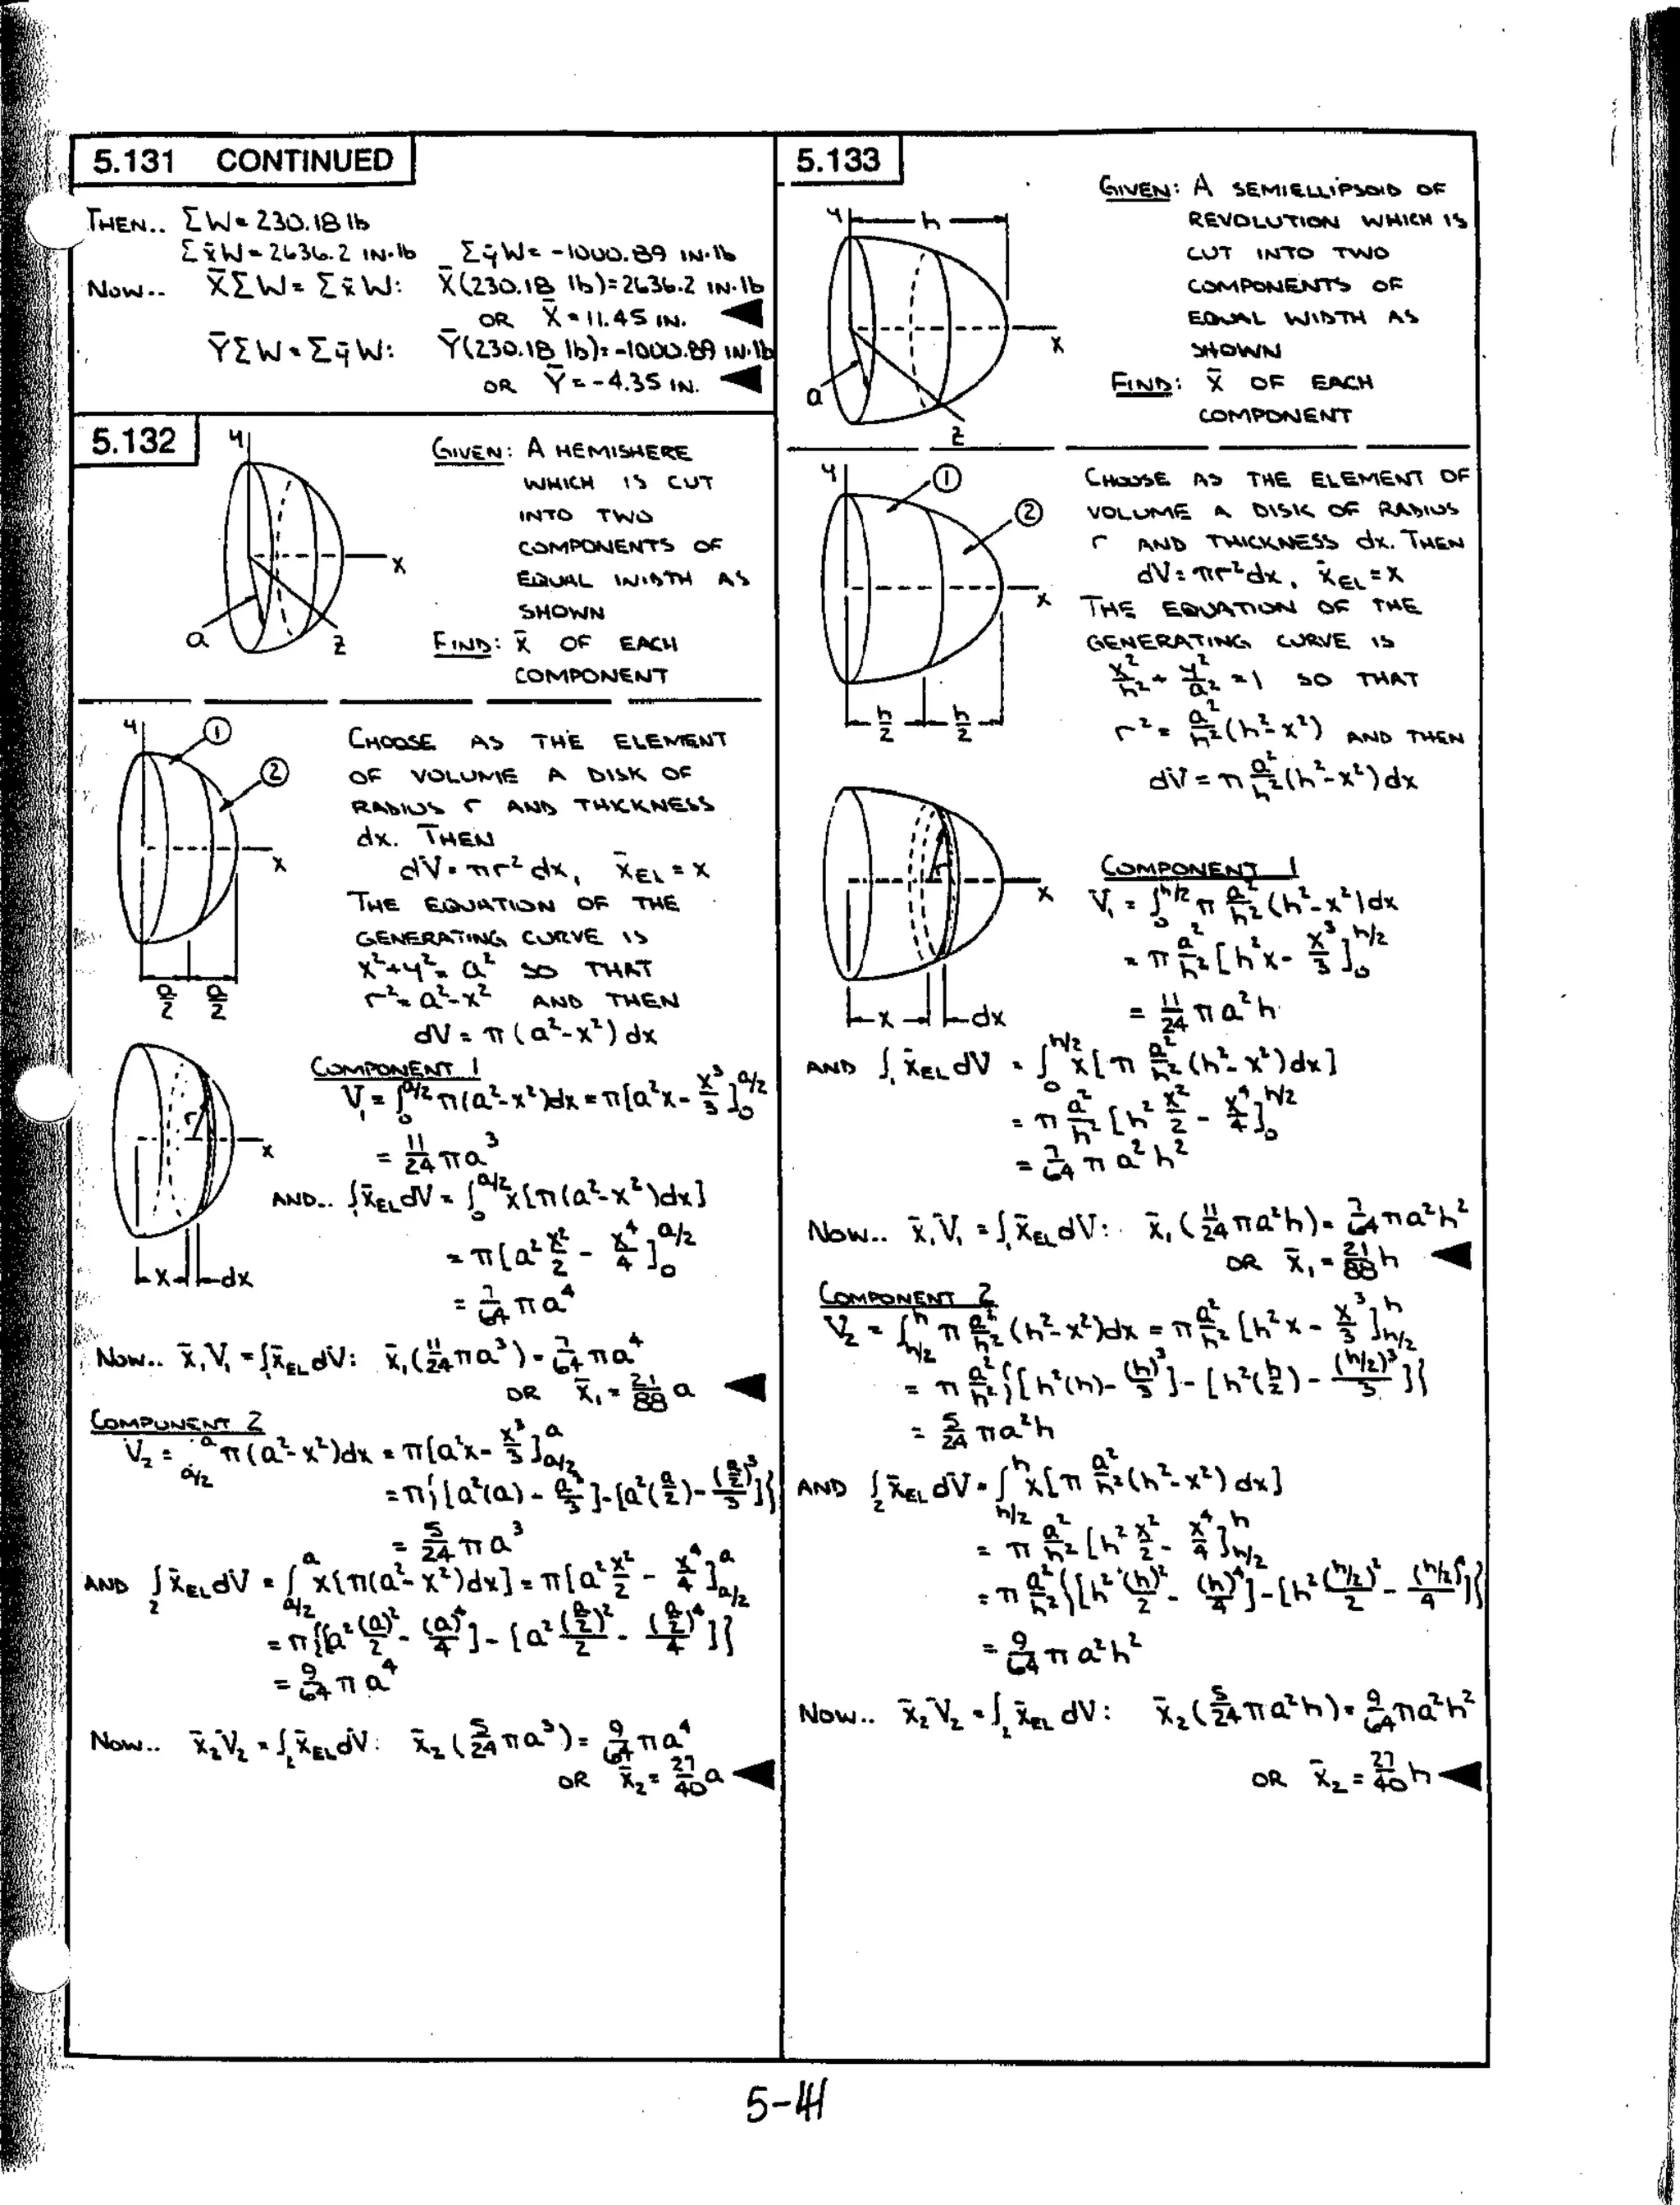 5.131 CONTINUED
THEN.. ΣW = 230.18 lb
Σx̄W = 2636.2 IN·lb ΣȳW = -1000.89 IN·lb
NOW.. X̄ΣW = Σx̄W: X̄(230.18 lb) = 2636.2 IN·lb
OR X̄ = 11.45 IN.
ȲΣW = ΣȳW: Ȳ(230.18 lb) = -1000.89 IN·lb
OR Ȳ = -4.35 IN.
5.132
y
x
a
z
GIVEN: A HEMISHERE
WHICH IS CUT
INTO TWO
COMPONENTS OF
EQUAL WIDTH AS
SHOWN
FIND: x̄ OF EACH
COMPONENT
y
①
②
x
a/2 a/2
CHOOSE AS THE ELEMENT
OF VOLUME A DISK OF
RADIUS r AND THICKNESS
dx. THEN
dV = πr² dx, x̄EL = x
THE EQUATION OF THE
GENERATING CURVE IS
x² + y² = a² SO THAT
r² = a² - x² AND THEN
dV = π(a² - x²) dx
r
x
x dx
COMPONENT 1
V₁ = ∫₀^(a/2) π(a² - x²)dx = π[a²x - x³/3]₀^(a/2)
= 11/24 πa³
AND.. ∫₁ x̄EL dV = ∫₀^(a/2) x[π(a² - x²)dx]
= π[a² x²/2 - x⁴/4]₀^(a/2)
= 7/64 πa⁴
NOW.. x̄₁V₁ = ∫₁ x̄EL dV: x̄₁(11/24 πa³) = 7/64 πa⁴
OR x̄₁ = 21/88 a
COMPONENT 2
V₂ = ∫_(a/2)^a π(a² - x²)dx = π[a²x - x³/3]_(a/2)^a
= π{[a²(a) - a³/3] - [a²(a/2) - (a/2)³/3]}
= 5/24 πa³
AND ∫₂ x̄EL dV = ∫_(a/2)^a x[π(a² - x²)dx] = π[a² x²/2 - x⁴/4]_(a/2)^a
= π{[a² (a)²/2 - (a)⁴/4] - [a² (a/2)²/2 - (a/2)⁴/4]}
= 9/64 πa⁴
NOW.. x̄₂V₂ = ∫₂ x̄EL dV: x̄₂(5/24 πa³) = 9/64 πa⁴
OR x̄₂ = 27/40 a
5.133
y
h
x
a
z
GIVEN: A SEMIELLIPSOID OF
REVOLUTION WHICH IS
CUT INTO TWO
COMPONENTS OF
EQUAL WIDTH AS
SHOWN
FIND: x̄ OF EACH
COMPONENT
y
①
②
x
h/2 h/2
CHOOSE AS THE ELEMENT OF
VOLUME A DISK OF RADIUS
r AND THICKNESS dx. THEN
dV = πr²dx, x̄EL = x
THE EQUATION OF THE
GENERATING CURVE IS
x²/h² + y²/a² = 1 SO THAT
r² = a²/h² (h² - x²) AND THEN
dV = π a²/h² (h² - x²) dx
r
x
x dx
COMPONENT 1
V₁ = ∫₀^(h/2) π a²/h² (h² - x²)dx
= π a²/h² [h²x - x³/3]₀^(h/2)
= 11/24 πa²h
AND ∫₁ x̄EL dV = ∫₀^(h/2) x[π a²/h² (h² - x²)dx]
= π a²/h² [h² x²/2 - x⁴/4]₀^(h/2)
= 7/64 πa²h²
NOW.. x̄₁V₁ = ∫₁ x̄EL dV: x̄₁(11/24 πa²h) = 7/64 πa²h²
OR x̄₁ = 21/88 h
COMPONENT 2
V₂ = ∫_(h/2)^h π a²/h² (h² - x²)dx = π a²/h² [h²x - x³/3]_(h/2)^h
= π a²/h² {[h²(h) - (h)³/3] - [h²(h/2) - (h/2)³/3]}
= 5/24 πa²h
AND ∫₂ x̄EL dV = ∫_(h/2)^h x[π a²/h² (h² - x²) dx]
= π a²/h² [h² x²/2 - x⁴/4]_(h/2)^h
= π a²/h² {[h² (h)²/2 - (h)⁴/4] - [h² (h/2)²/2 - (h/2)⁴/4]}
= 9/64 πa²h²
NOW.. x̄₂V₂ = ∫₂ x̄EL dV: x̄₂(5/24 πa²h) = 9/64 πa²h²
OR x̄₂ = 27/40 h
5-41